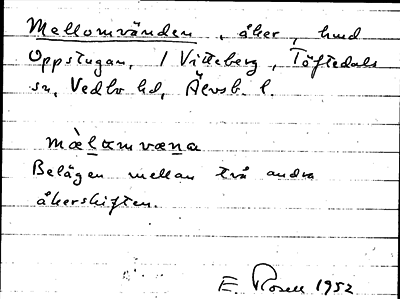 Mellomvänden, åker, hmd
Oppstugan, 1 Vitteberg, Töftedals
sn, Vedbo hd, Älvsb. l.
mæ̀lɑmvæna
Belägen mellan två andra
åkerskiften.
E. Rosell 1952